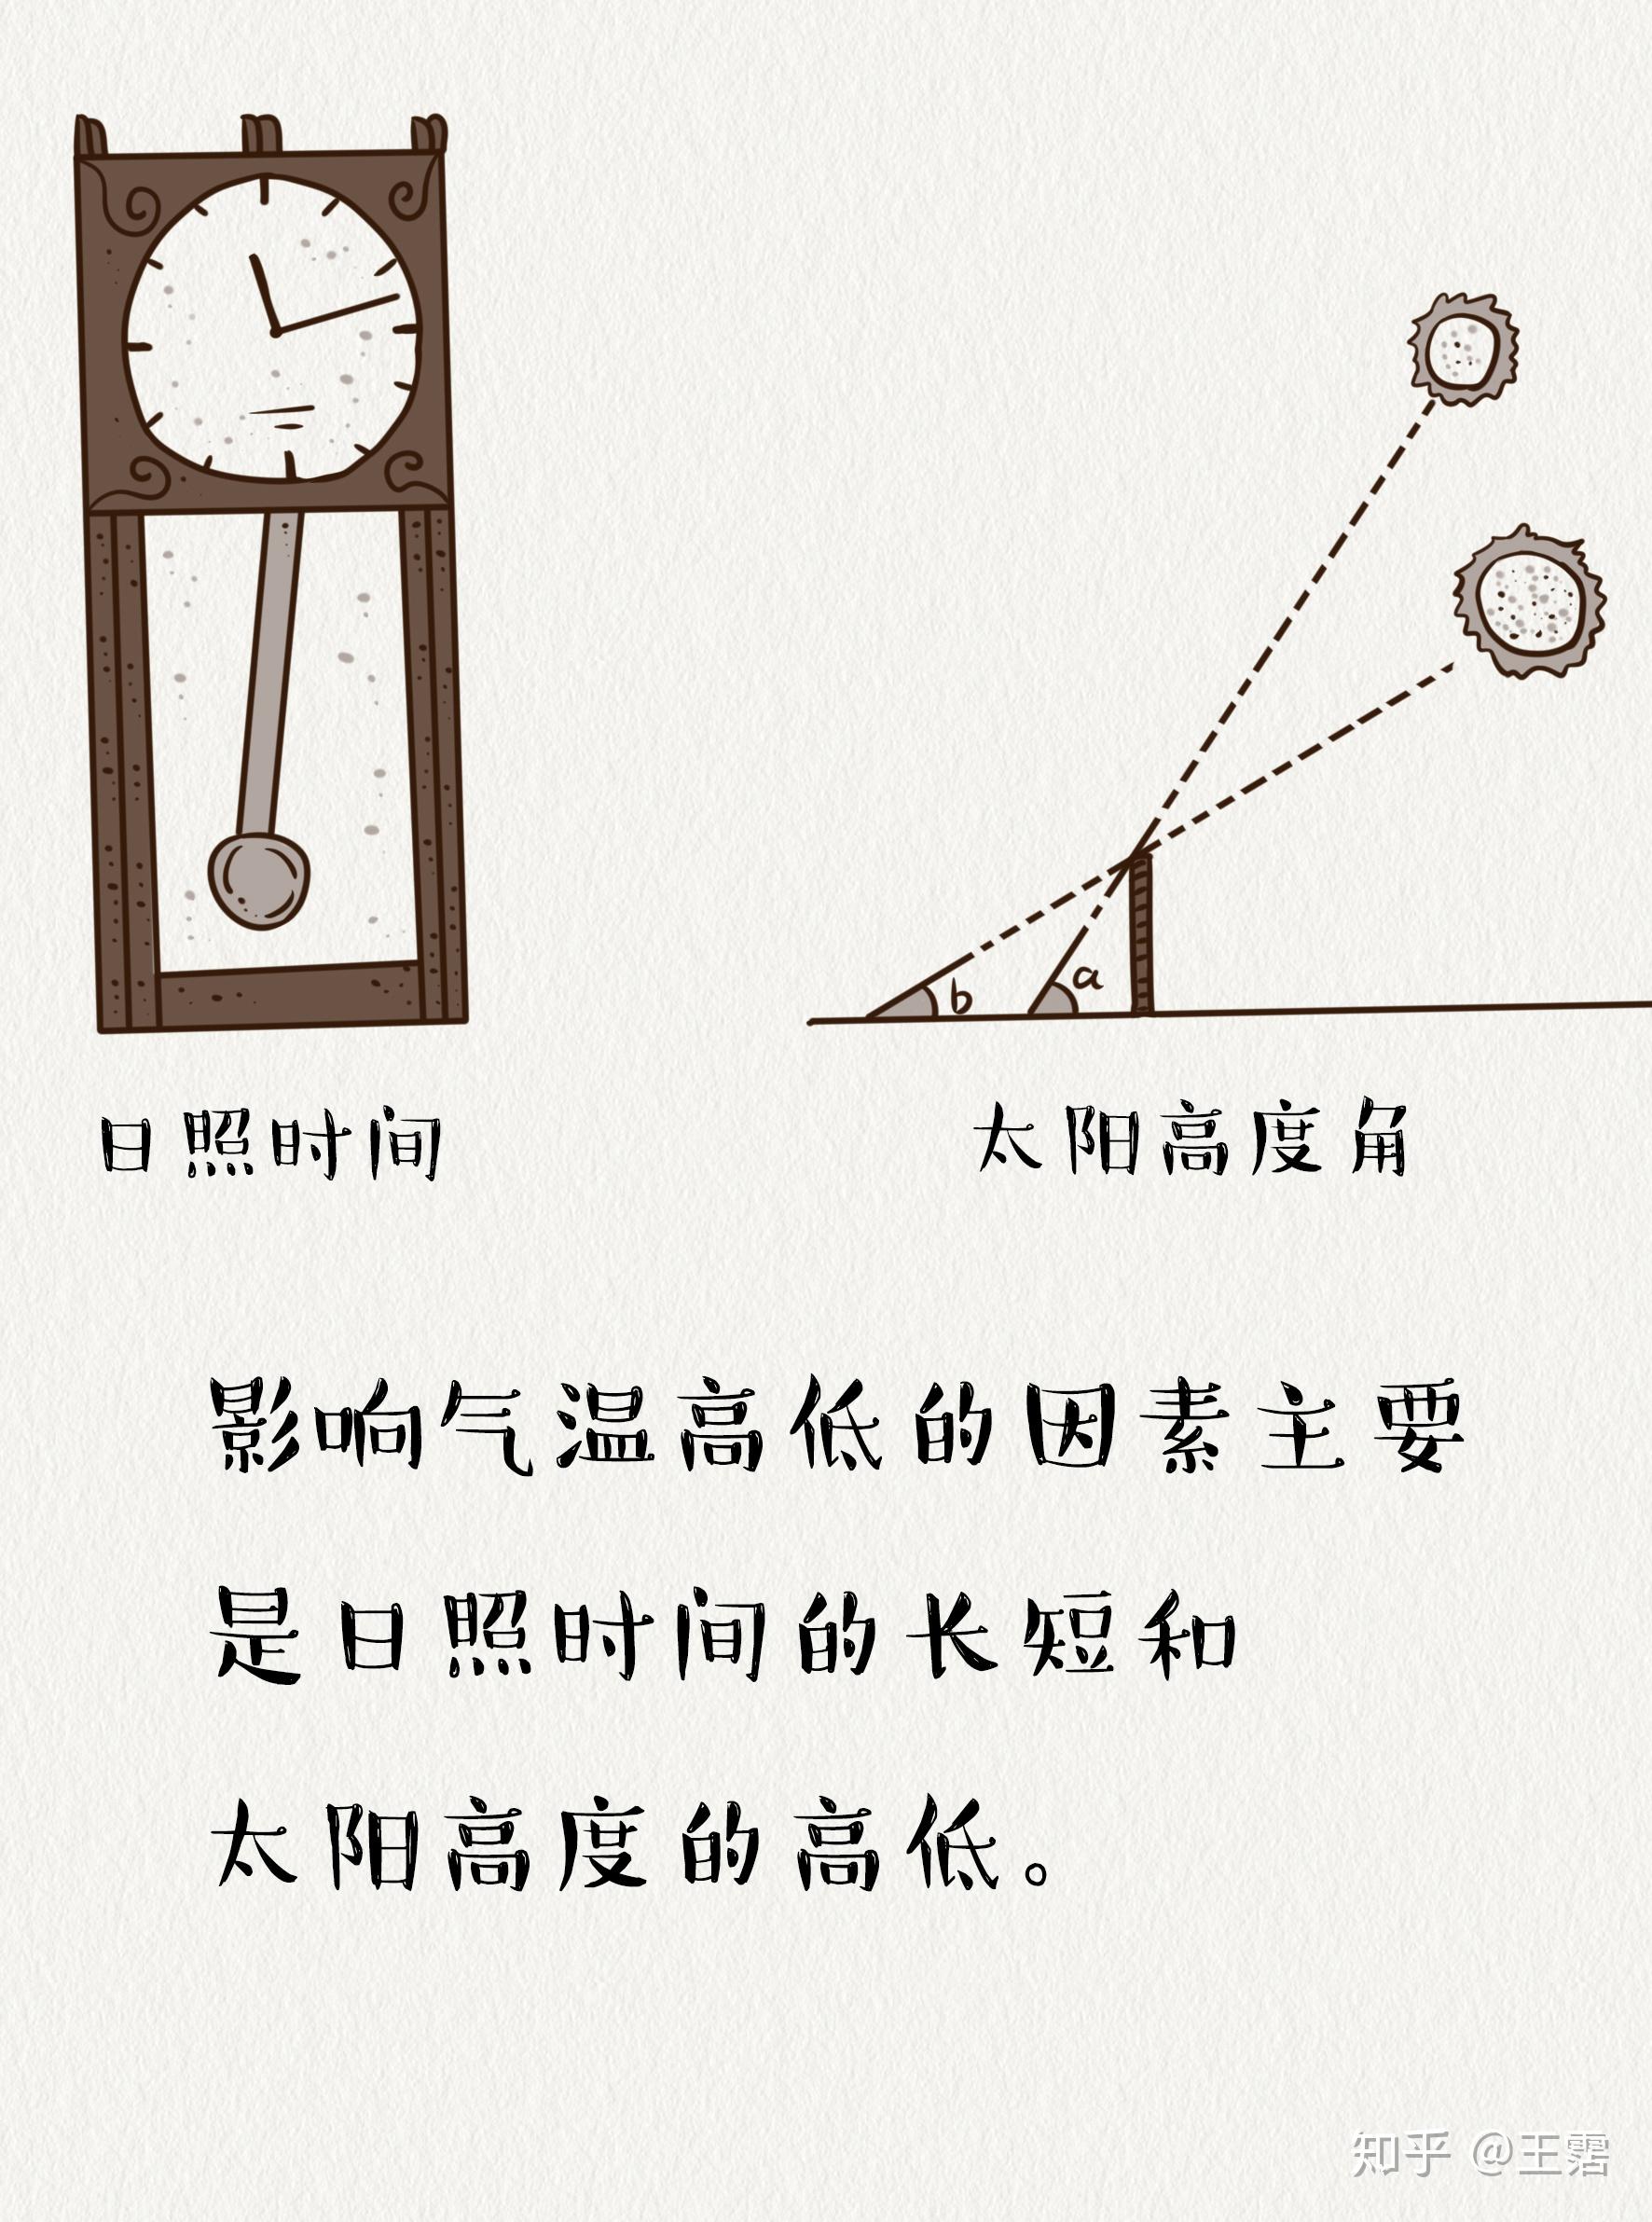 b
a
日照时间
太阳高度角
影响气温高低的因素主要
是日照时间的长短和
太阳高度的高低。
知乎 @王霱